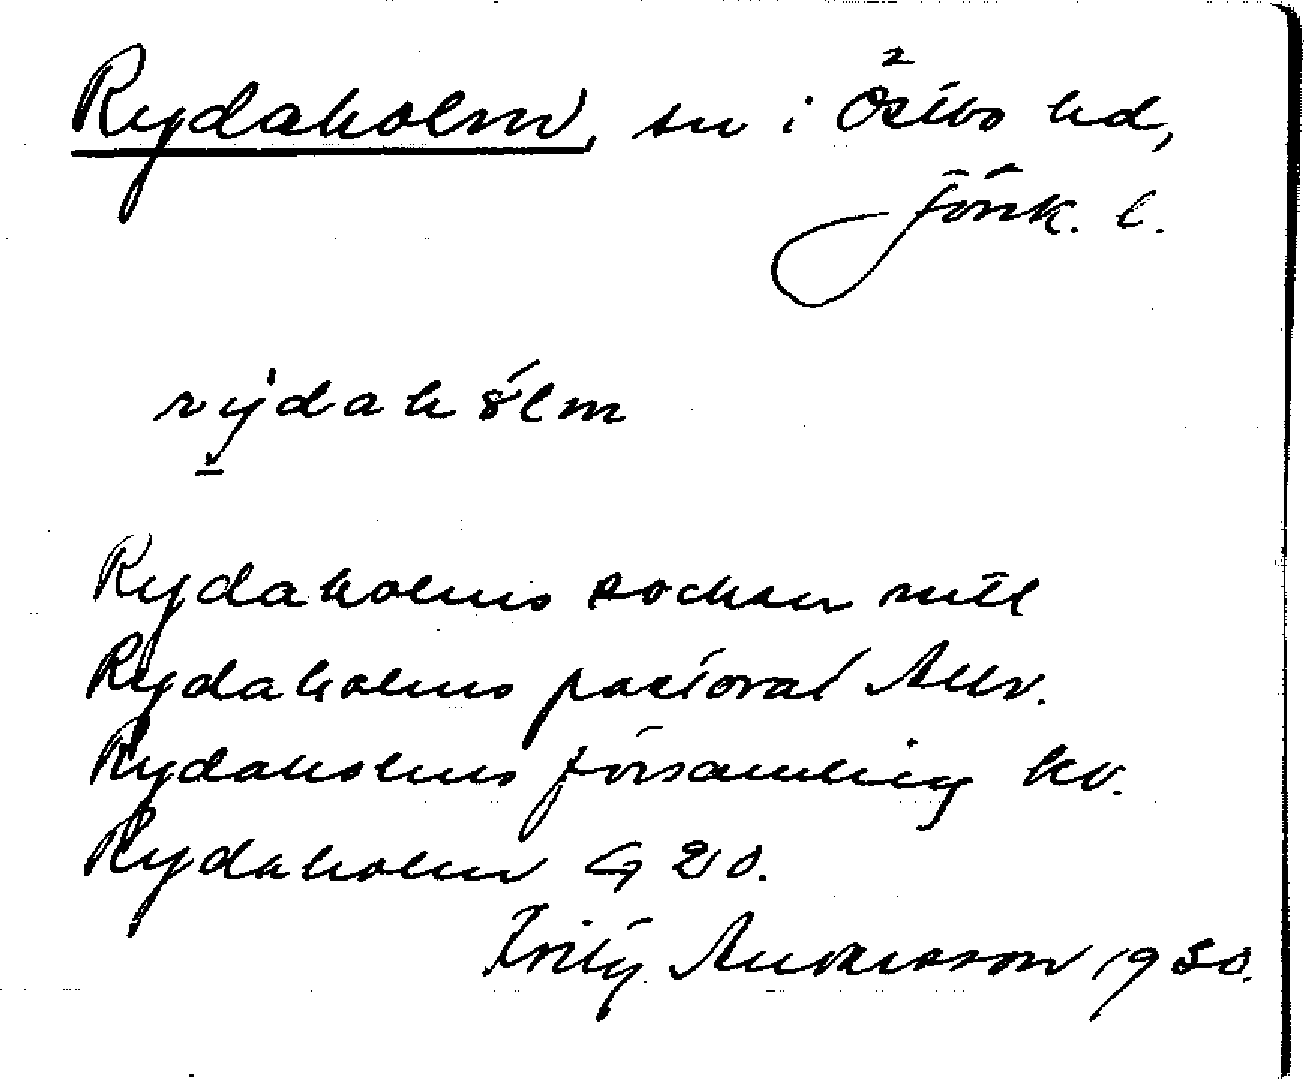 Rydaholm, sn i Östbo hd,
Jönk. l.
rydahólm
Rydaholms socken mtl
Rydaholms pastorat
Rydaholms församling kv.
Rydaholm G 20.
Fritz Andersson 1930.